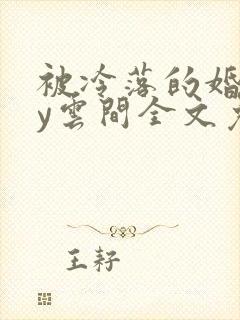 被冷落的婚
y雲間全文
王耔